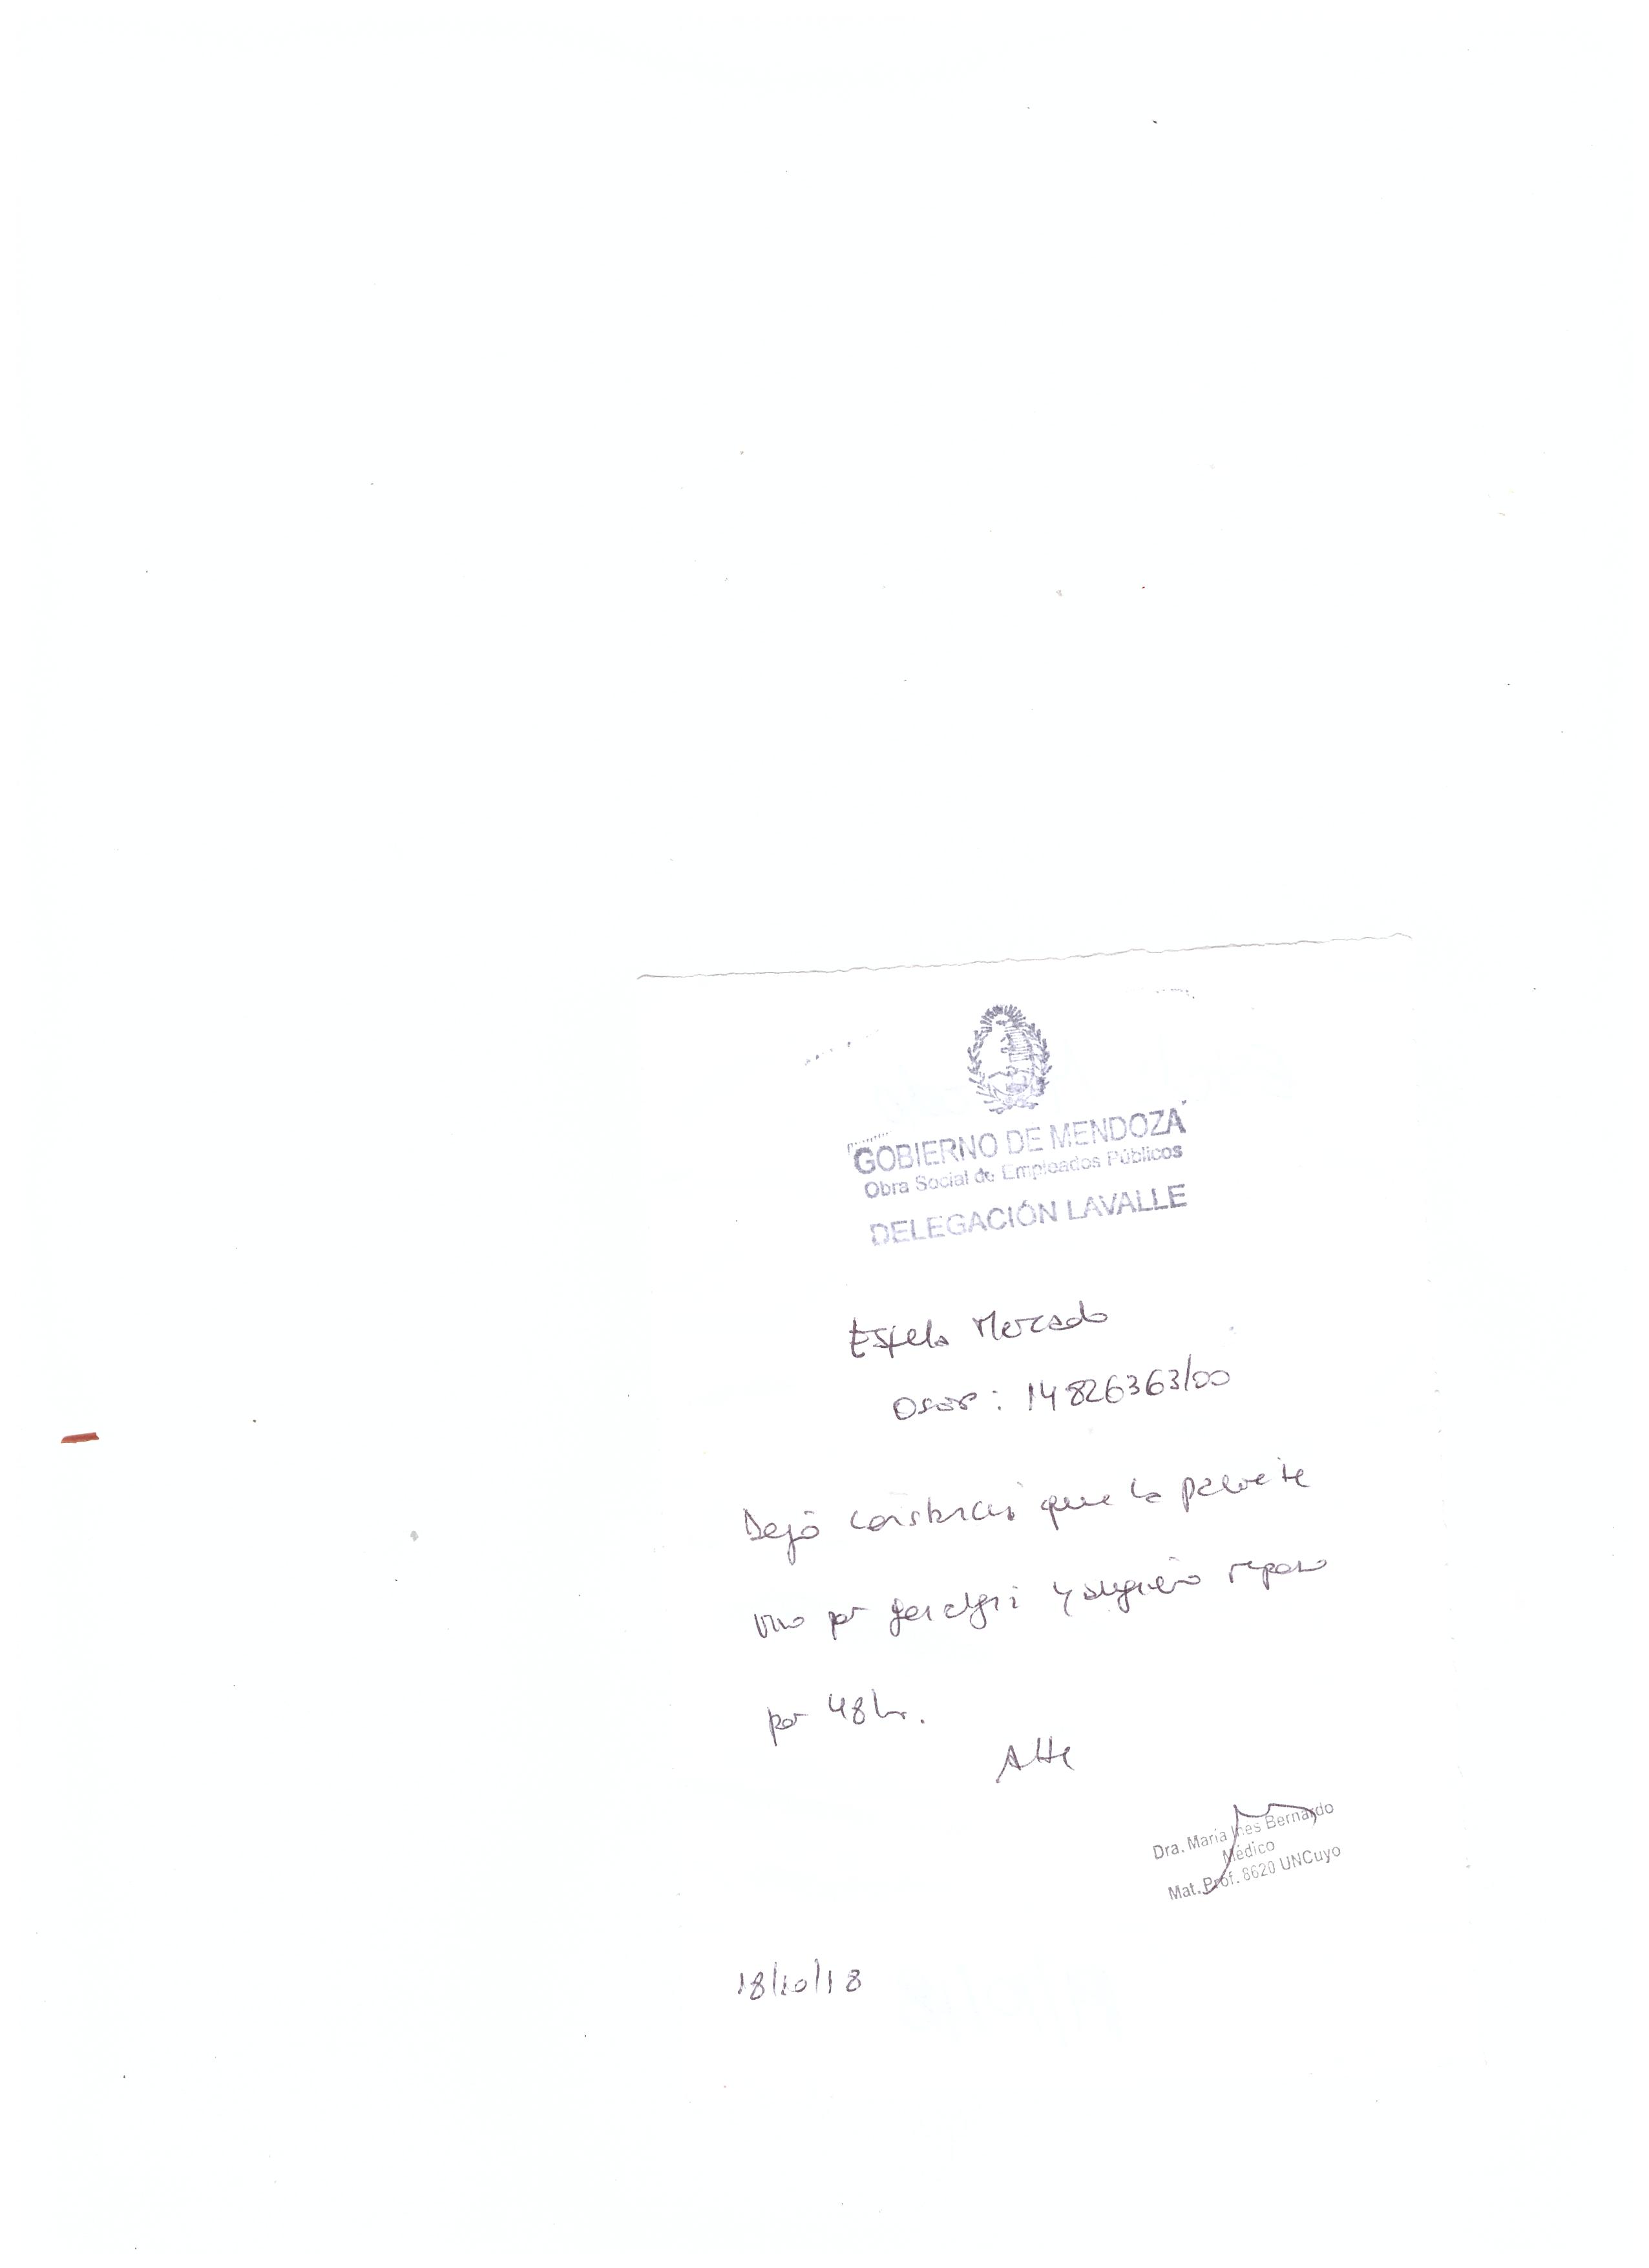 GOBIERNO DE MENDOZA
Obra Social de Empleados Públicos
DELEGACIÓN LAVALLE
Estela Mercado
OSEP : 14826363/00
Dejo constancia que la paciente
vino por y sugiero reposo
por 48 hs.
Atte
Dra. Maria Ines Bernardo
Médico
Mat. Prof. 8620 UNCuyo
18/10/18